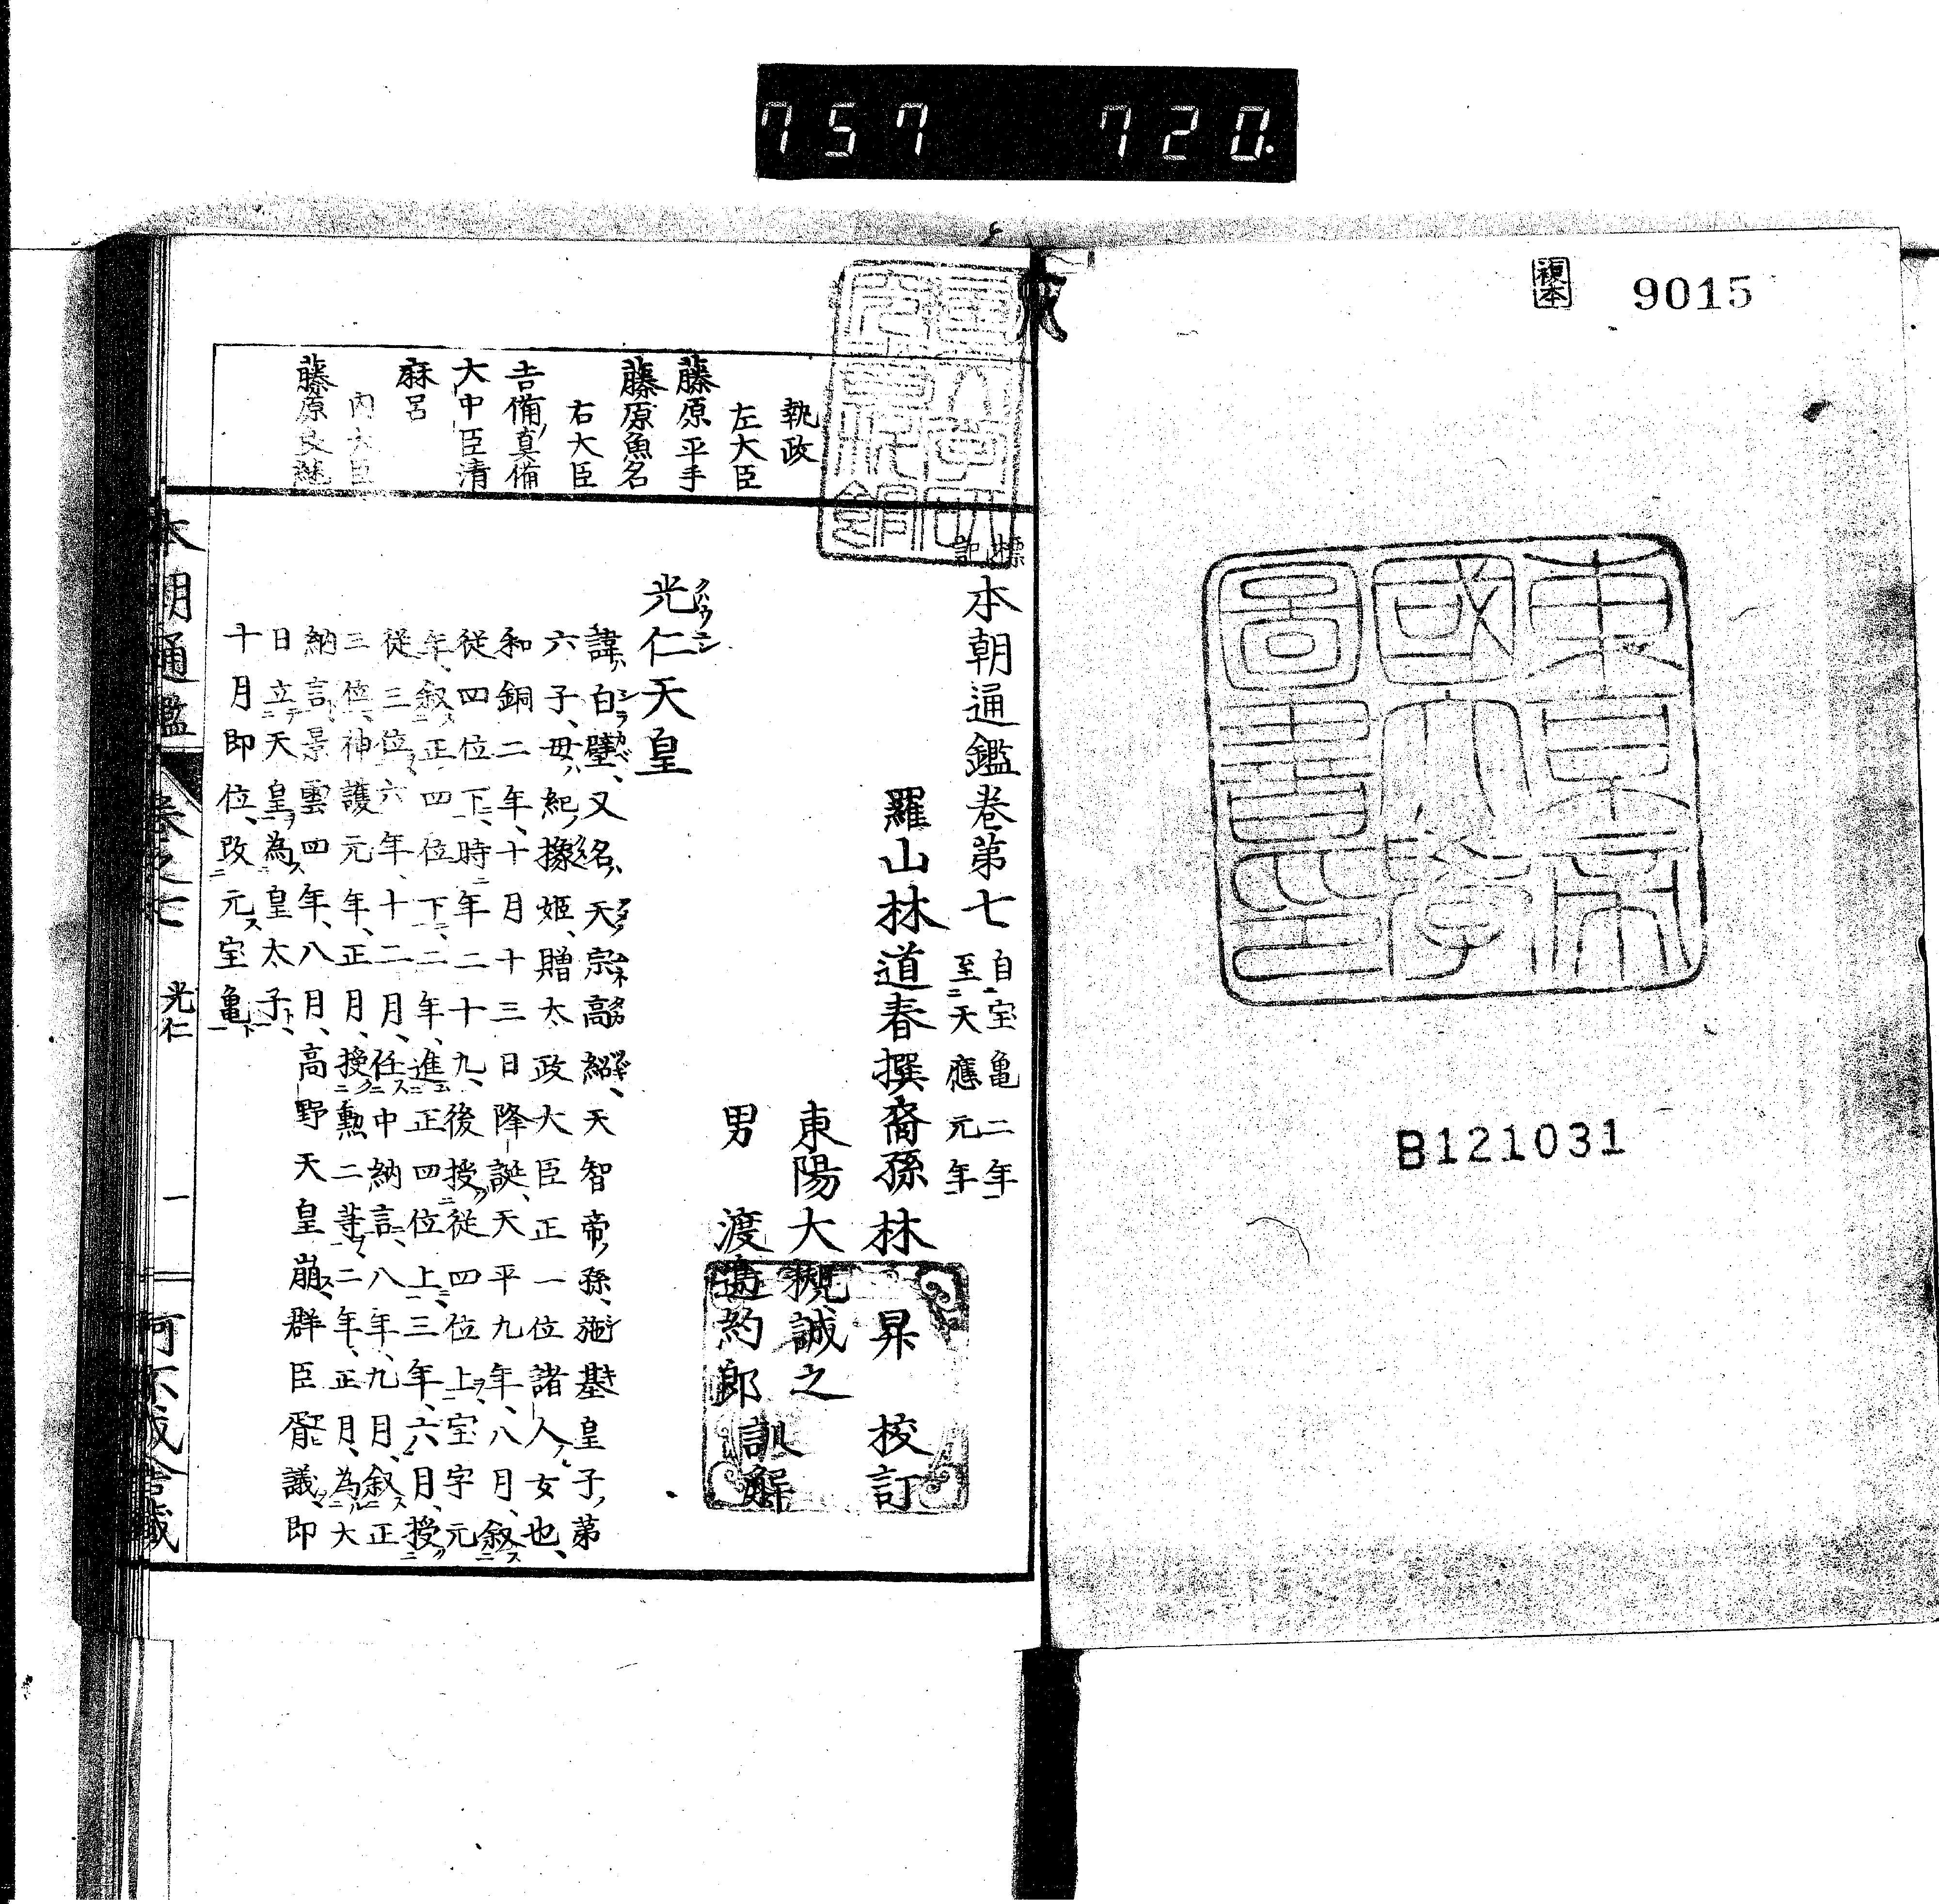 757 720.
複本
9015
東京帝
國大學
圖書印
B121031
標記
本朝通鑑卷第七
自宝亀二年
至天應元年
羅山林道春撰裔孫林昇校訂
東陽大槻誠之
男渡邉約郎
訓解
光仁天皇
諱白壁、又名天宗高紹、天智帝孫、施基皇子第
六子、母紀橡姫、贈太政大臣正一位諸人女也、
和銅二年、十月十三日降誕、天平九年、八月、叙
従四位下、時年二十九、後授従四位上、宝字元
年、叙正四位下、二年、進正四位上、三年、六月、授
従三位、六年、十二月、任中納言、八年、九月、叙正
三位、神護元年、正月、授勲二等、二年、正月、為大
納言、景雲四年、八月、高野天皇崩、群臣胥議、即
日立天皇為皇太子、
十月即位、改元宝亀
執政
左大臣
藤原平手
藤原魚名
右大臣
吉備真備
大中臣清
麻呂
内大臣
藤原良継
本朝通鑑 卷之七 光仁 一